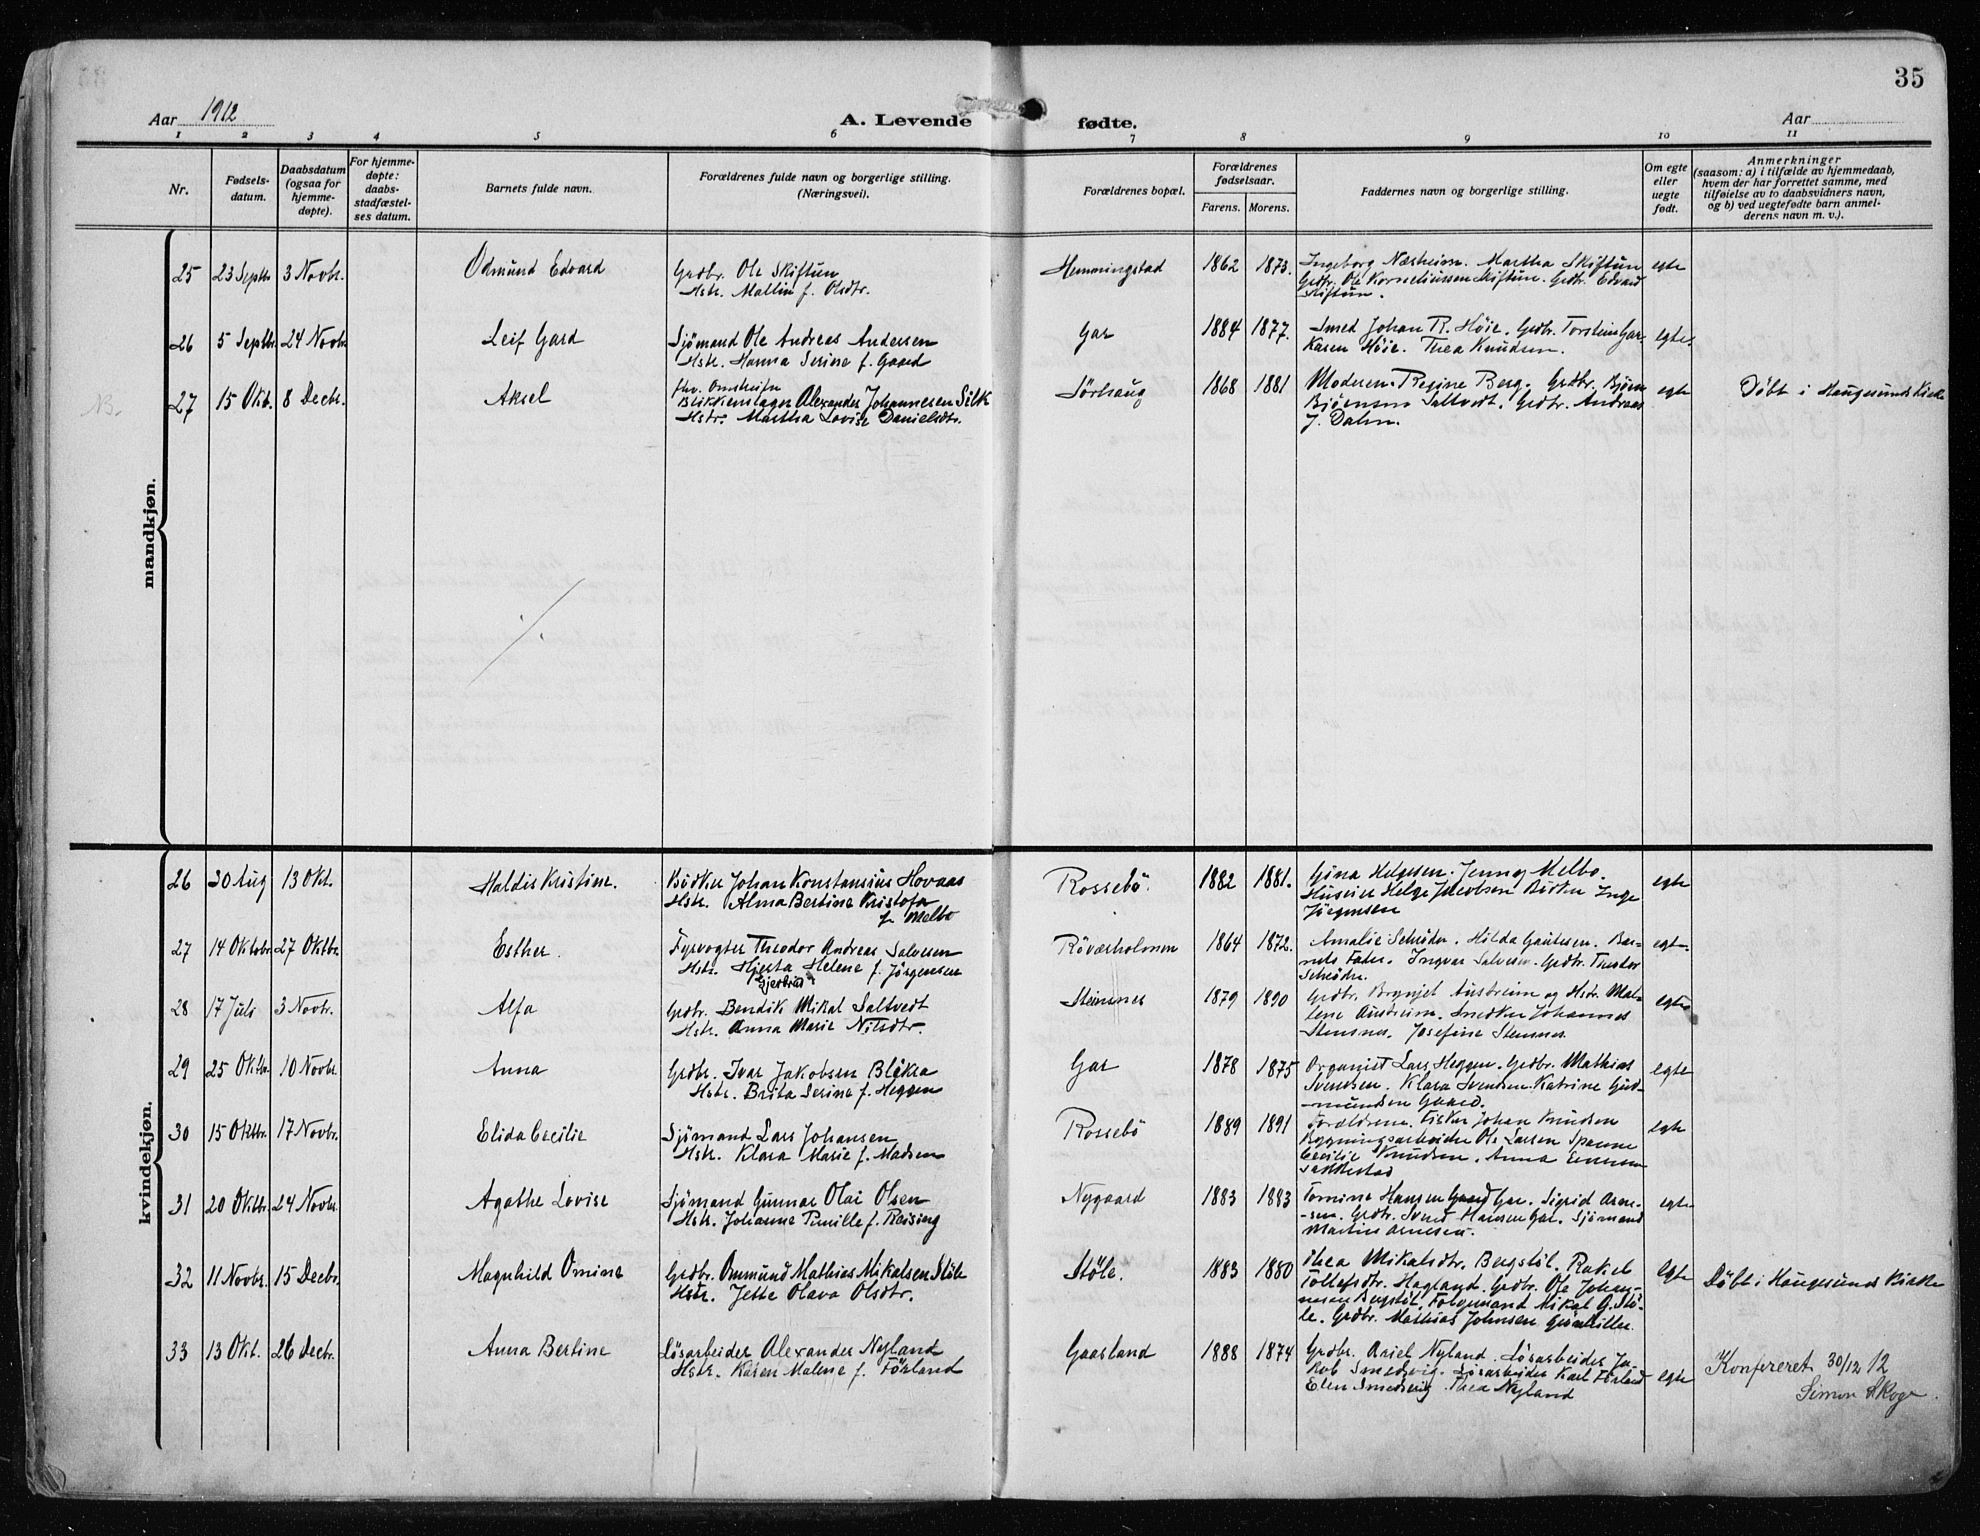 35
Aar 1912
A. Levende fødte.
Aar
1 2 3 4 5 6 7 8 9 10 11
Nr.
Fødsels-
datum.
Daabsdatum
(ogsaa for
hjemme-
døpte).
For hjemme-
døpte:
daabs-
stadfæstel-
ses datum.
Barnets fulde navn.
Forældrenes fulde navn og borgerlige stilling.
(Næringsvei).
Forældrenes bopæl.
Forældrenes
fødselsaar.
Farens. Morens.
Faddernes navn og borgerlige stilling.
Om egte
eller
uegte
født.
Anmerkninger
(saasom: a) i tilfælde av hjemmedaab,
hvem der har forrettet samme, med
tilføielse av to daabsvidners navn,
og b) ved uegtefødte barn anmel-
derens navn m. v.).
mandkjøn.
25 23 Septbr. 3 Novbr. Odmund Edvard
Grdbr. Ole Skiftun
Hstr. Mallin f. Olsdtr.
Hemmingstad 1862 1873.
Ingeborg Næsheim. Martha Skiftun
Grdbr. Ole Korneliussen Skiftun. Grdbr. Edvard
Skiftun.
egte
26 5 Septbr. 24 Novbr. Leif Gard
Sjömand Ole Andreas Andersen
Hstr. Hanna Serine f. Gaard
Gar 1884 1877.
Smed Johan R. Höie. Grdbr. Torstein Gar.
Karen Höie. Thea Knudsen.
egte.
NB. 27 15 Okt. 8 Decbr. Aksel
Blikkenslager Alexander Johannesen Silk
Hstr. Martha Lovise Danielsdtr.
Sörhaug 1868 1881
Moderen. Regine Berg. Grdbr. Björn
Björnsen Saltvedt. Grdbr. Andreas
J. Dahm.
egte
Döbt i Haugesunds Kirke
kvindekjøn.
26 30 Aug 13 Okt. Haldis Kristine.
Bödker Johan Konstansius Hovaas
Hstr. Alma Bertine Kristofa
f. Melbo
Rossebö. 1882 1881.
Gina Helgesen. Jenny Melbo.
Huseier Helge Jacobsen Bödker Inge
Jörgensen
egte
27 14 Oktobr. 27 Oktbr. Esther.
Fyrvogter Theodor Andreas Salvesen
Hstr. Hjerta Helene f. Jörgensen
Gjertrud
Röværholmen 1864 1872.
Amalie Schröder. Hilda Gautesen. Bar-
nets Fader. Ingvar Salvesen. Grdbr. Theodor
Schröder.
egte.
28 17 Juli 3 Novbr. Alfa
Grdbr. Bendik Mikal Saltvedt
Hstr. Anna Marie Nilsdtr.
Steinsnes 1879 1890
Grdbr. Brynjel Austreim og Hstr. Mal-
lene Austreim. Snedker Johannes
Stensnes. Josefine Stensnes.
egte
29 25 Oktbr. 10 Novbr. Anna
Grdbr. Ivar Jakobsen Blikra
Hstr. Brita Serine f. Heggen
Gar 1878 1875
Organist Lars Heggen. Grdbr. Mathias
Svendsen. Klara Svendsen. Katrine Gud-
-mundsen Gaard.
egte
30 15 Oktbr. 17 Novbr. Elida Cecilie
Sjömand Lars Johansen
Hstr. Klara Marie f. Madsen
Rossebö 1889 1891
Forældrene. Fisker Johan Knudsen
Bygningsarbeider Ole Larsen Spanne
Cecilie Knudsen. Anna
egte
31 20 Oktbr. 24 Novbr. Agathe Lovise
Sjömand Gunnar Olai Olsen
Hstr. Johanne Pernille f. Reising
Nygaard 1883 1883
Tomine Hansen Gar. Sigrid Arne-
-sen. Grdbr. Svend Hansen Gar. Sjömand
Martin Arnesen.
egte
32 11 Novbr. 15 Decbr. Magnhild Omine
Grdbr. Ommund Mathias Mikalsen Stöle
Hstr. Jette Olava Olsdtr.
Stöle. 1883 1880
Thea Mikalsdtr. Bergstöl. Rakel
Tollefsdtr. Hagland. Grdbr. Ole Johan-
nesen Bergstöl. Folgemand Mikal G. Stö-
le. Grdbr. Mathias Johnsen
egte
Döbt i Haugesunds Kirke
33 13 Okt. 26 Decbr. Anna Bertine
Lösarbeider Alexander Nyland
Hstr. Karen Malene f. Förland
Gaasland 1888 1874
Grdbr. Ariel Nyland. Lösarbeider Ja-
kob Smedsvig. Lösarbeider Karl Förland
Elen Smedsvig Thea Nyland
egte
Konfereret 30/12 12
Simon Skoge.